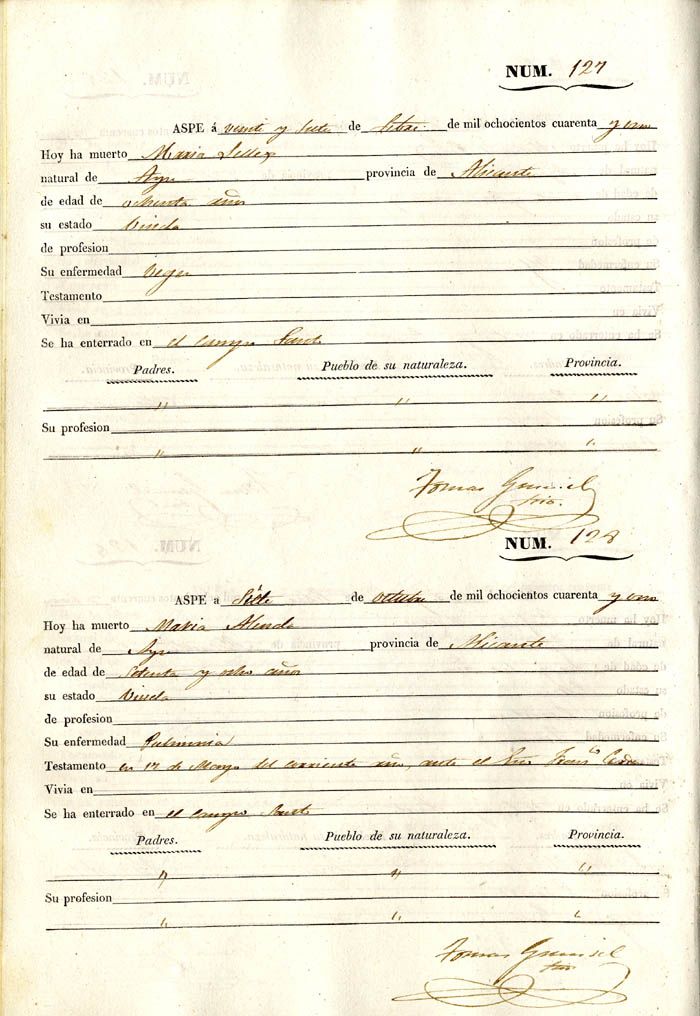 NUM. 127
ASPE á veinte y siete de Stbre. de mil ochocientos cuarenta y uno
Hoy ha muerto Maria
natural de Aspe provincia de Alicante
de edad de ochenta años
su estado Viuda
de profesion
Su enfermedad Vegez
Testamento
Vivia en
Se ha enterrado en el Campo Santo
Padres. Pueblo de su naturaleza. Provincia.
" " "
Su profesion
" " "
Tomas
Srio.
NUM. 128
ASPE a Siete de octubre de mil ochocientos cuarenta y uno
Hoy ha muerto Maria
natural de Aspe provincia de Alicante
de edad de Setenta y ocho años
su estado Viuda
de profesion
Su enfermedad Pulmonia
Testamento en 17 de Mayo del corriente año, ante el Srio Franco
Vivia en
Se ha enterrado en el Campo Santo
Padres. Pueblo de su naturaleza. Provincia.
" " "
Su profesion
" " "
Tomas
Srio